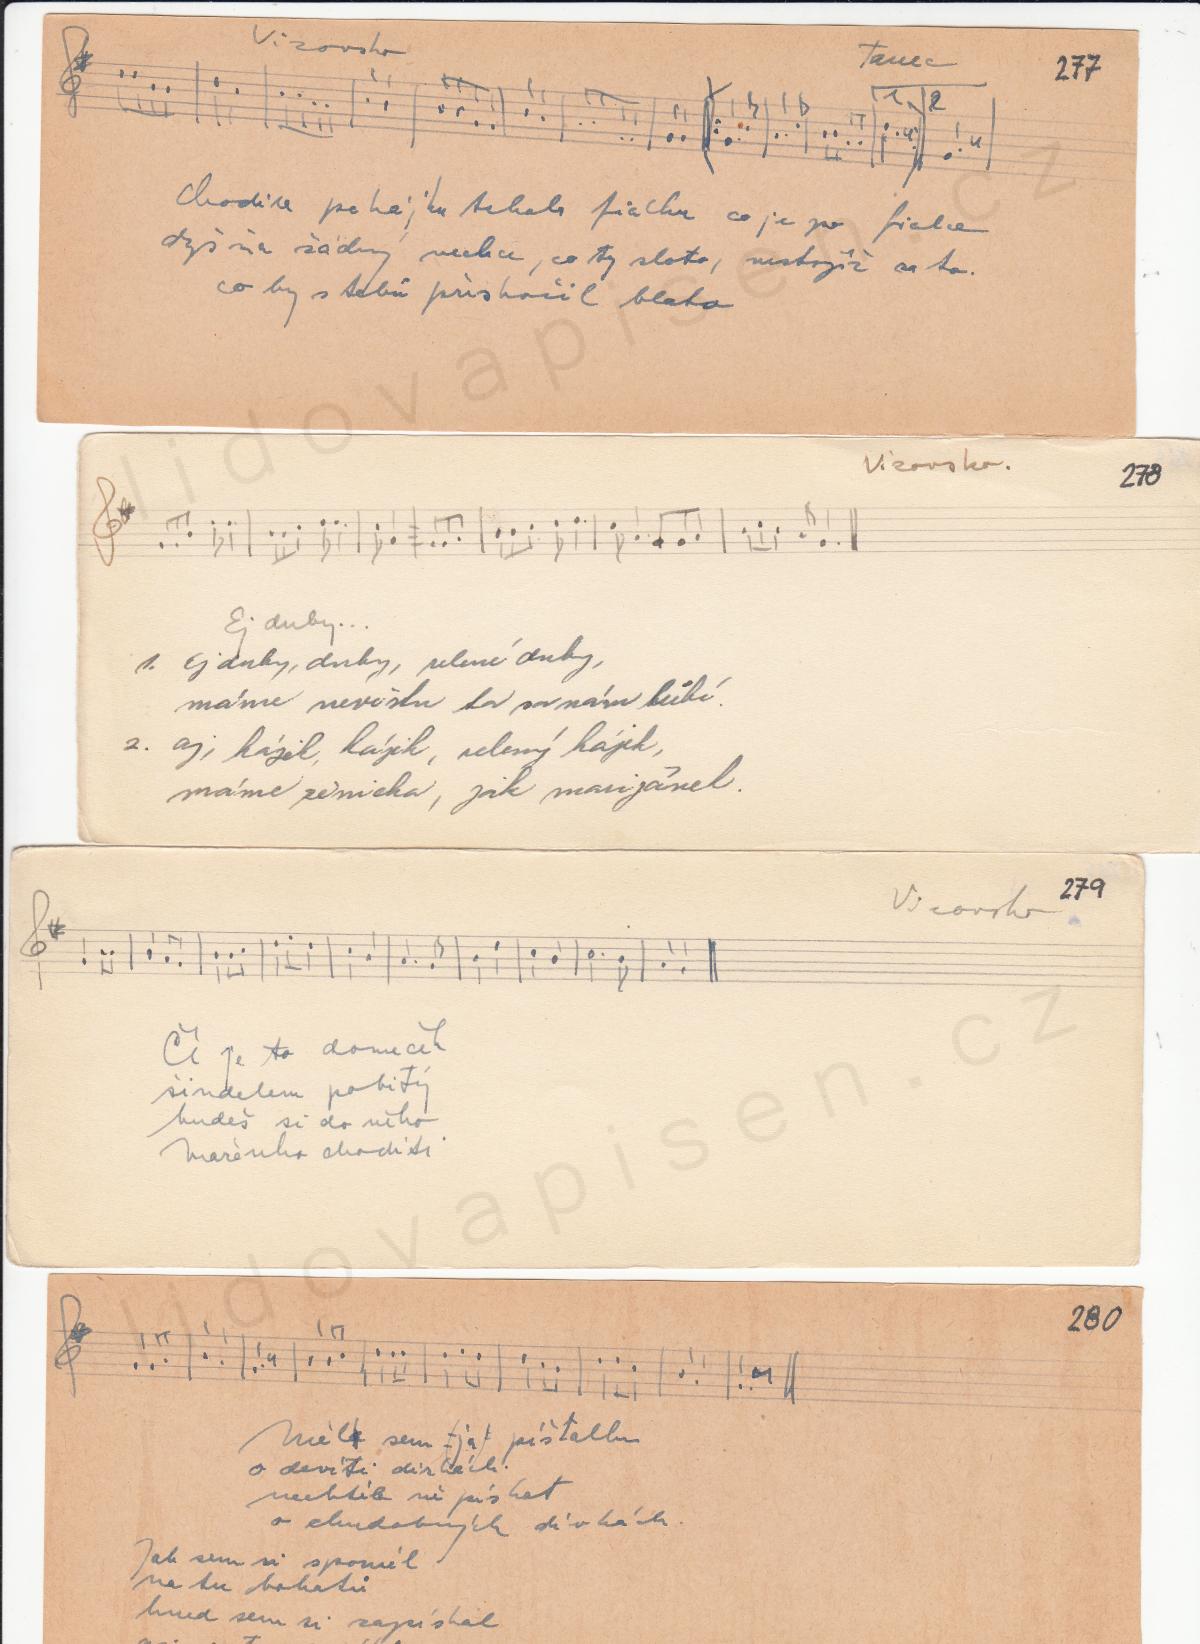 Vizovsko
Tanec
277
1. 2
Chodila po hájku trhala fiałku co je po fialce
dyž ňa žádný nechce, co ty zlato, nestojíš za to.
co by s tebú přiskočil blato
Vizovsko.
278
Ej duby...
1. Ej duby, duby, zelené duby,
máme nevěstu ta sa nám lúbí.
2. aj, hájik, hájik, zelený hájik,
máme ženicha, jak marijánek.
Vizovsko
279
Čí je to domeček
šindelem pobitý
budeš si do něho
Marénko choditi
280
Měl sem (já) píšťalku
o devíti dirkách.
nechtěla ně pískat
o chudobných dívkách.
Jak sem si spomněl
na tu bohatú
hned sem si zapískal
lidovapisen.cz
lidovapisen.cz